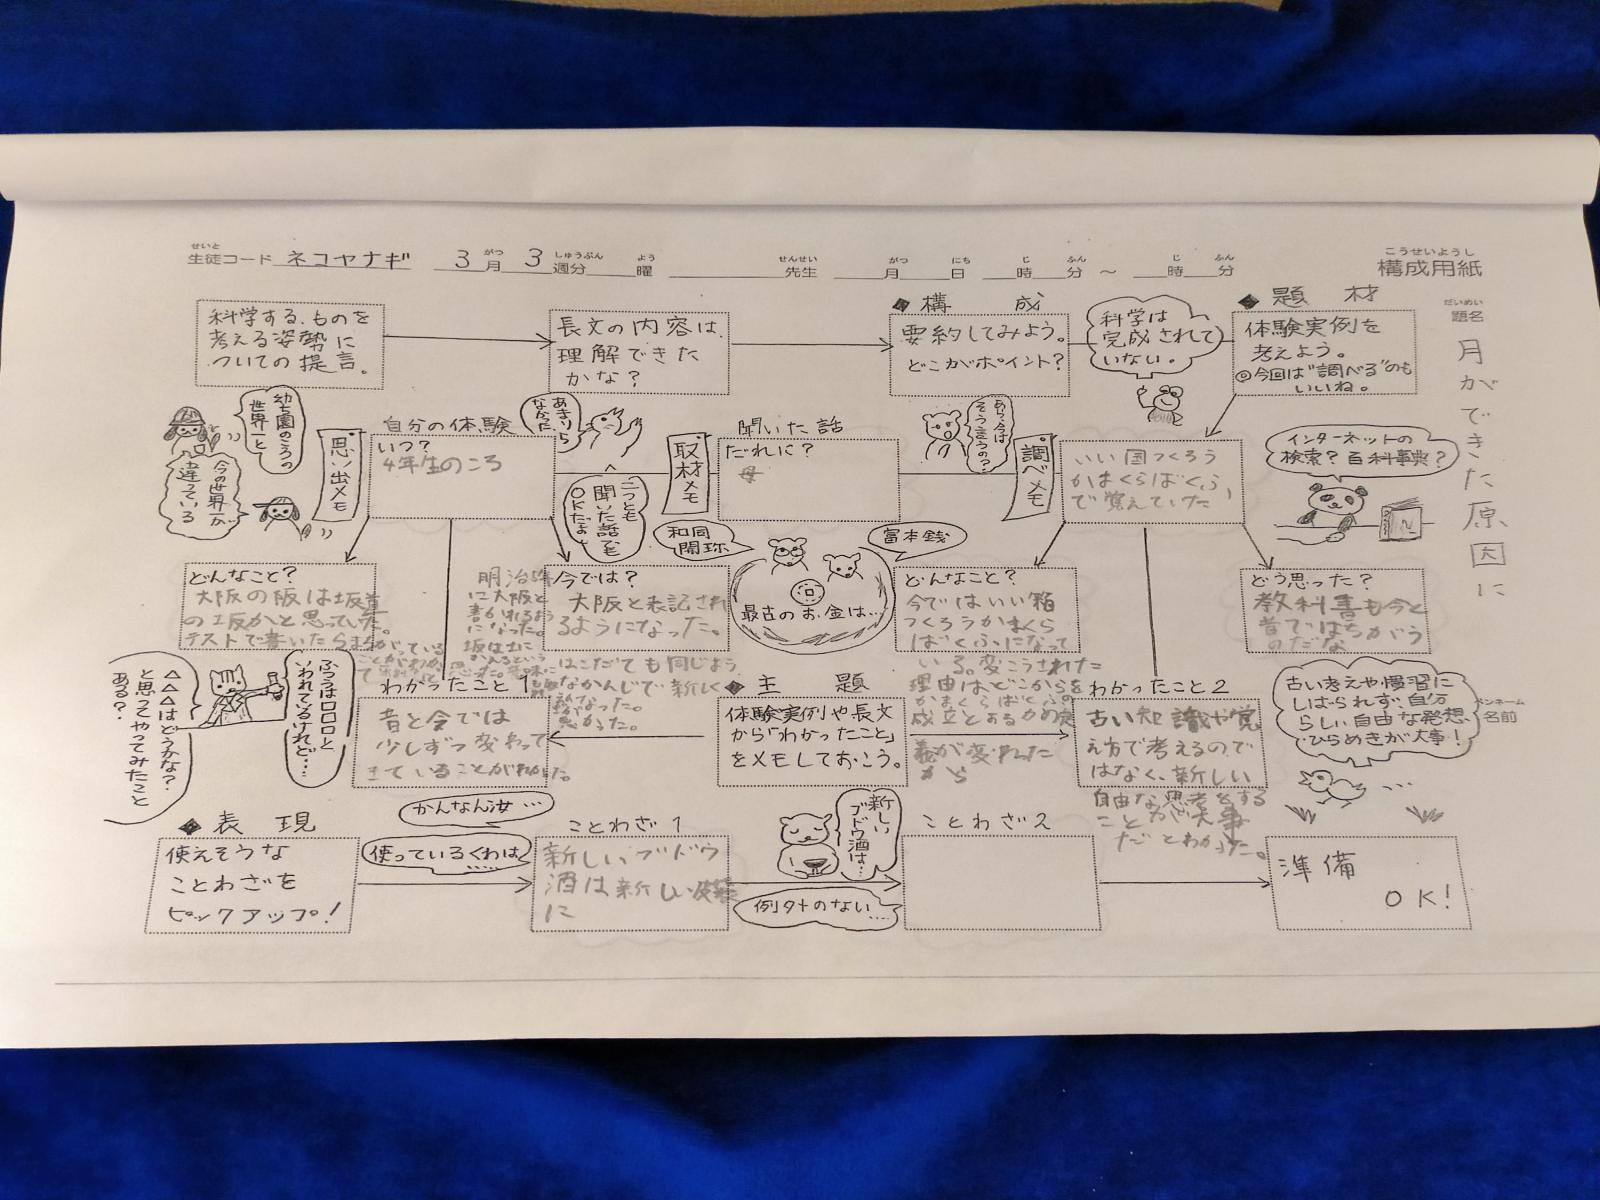 せいと
生徒コード ネコヤナギ 3月 3週分 曜 先生 月 日 時 分 ~ 時 分
がつ しゅうぶん よう せんせい がつ にち じ ふん じ ふん
こうせいようし
構成用紙
だいめい
題名
月ができた原因に
科学する、ものを
考える姿勢に
ついての提言。
長文の内容は、
理解できた
かな?
◆構 成
要約してみよう。
どこがポイント?
科学は
完成されて
いない。
◆題 材
体験実例を
考えよう。
◎今回は"調べる"のも
いいね。
幼稚園のころの
世界と
今の世界が
違っている
思い出メモ
自分の体験
いつ?
4年生のころ
あまり
なかった
二つとも
聞いた話でも
OKだよ
取材メモ
聞いた話
だれに?
母
あら、今は
そう言うの?
調べメモ
いい国つくろう
かまくらばくふ
で覚えていた
インターネットの
検索?百科事典?
和同
開珎
富本銭
最古のお金は…
どんなこと?
大阪の阪は坂道
の坂かと思っていた。
テストで書いたらまちがっている
ことがわかっ
明治
に大阪と
書かれるよう
になった。
坂は土に
かえるという
今では?
大阪と表記され
るようになった。
はこだても同じよう
なかんじで新しく
なった。
どんなこと?
今ではいい箱
つくろうかまくら
ばくふになって
いる。変こうされた
理由はどこからを
かまくらばくふの
成立とするかの定
義が変わった
から
どう思った?
教科書も今と
昔ではちがう
のだな
ふつうは□□□□と
いわれているけれど…
△△△はどうかな?
と思ってやってみたこと
ある?
わかったこと1
昔と今では
少しずつ変わって
きていることがわかった。
◆主 題
体験実例や長文
から「わかったこと」
をメモしておこう。
わかったこと2
古い知識や覚
え方で考えるので
はなく、新しい
自由な思考をする
ことが大事
だとわかった。
古い考えや慣習に
しばられず、自分
らしい自由な発想、
ひらめきが大事!
ペンネーム
名前
◆表 現
使えそうな
ことわざを
ピックアップ!
かんなん汝…
使っているくわは
ことわざ1
新しいブドウ
酒は新しい皮袋
に
新しい
ブドウ酒は…
例外のない…
ことわざ2
準備
OK!